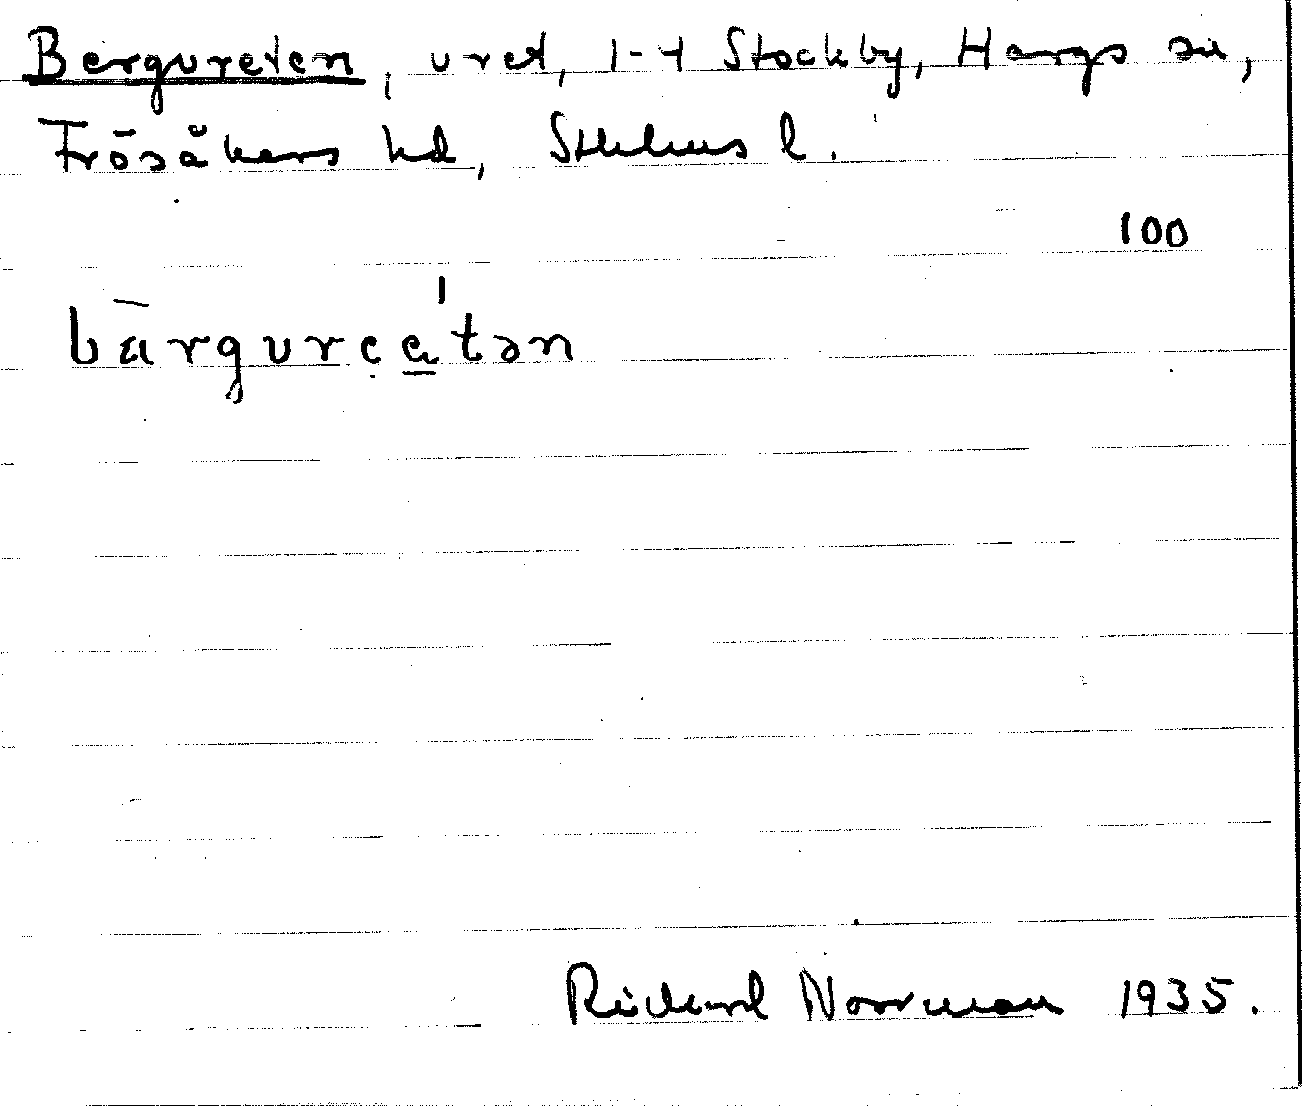 Bergureten, uret, 1-4 Stockby, Hargs sn,
Frösåkers hd, Sthlms l.
100
bārgurea̱'tən
Richard Norrman 1935.